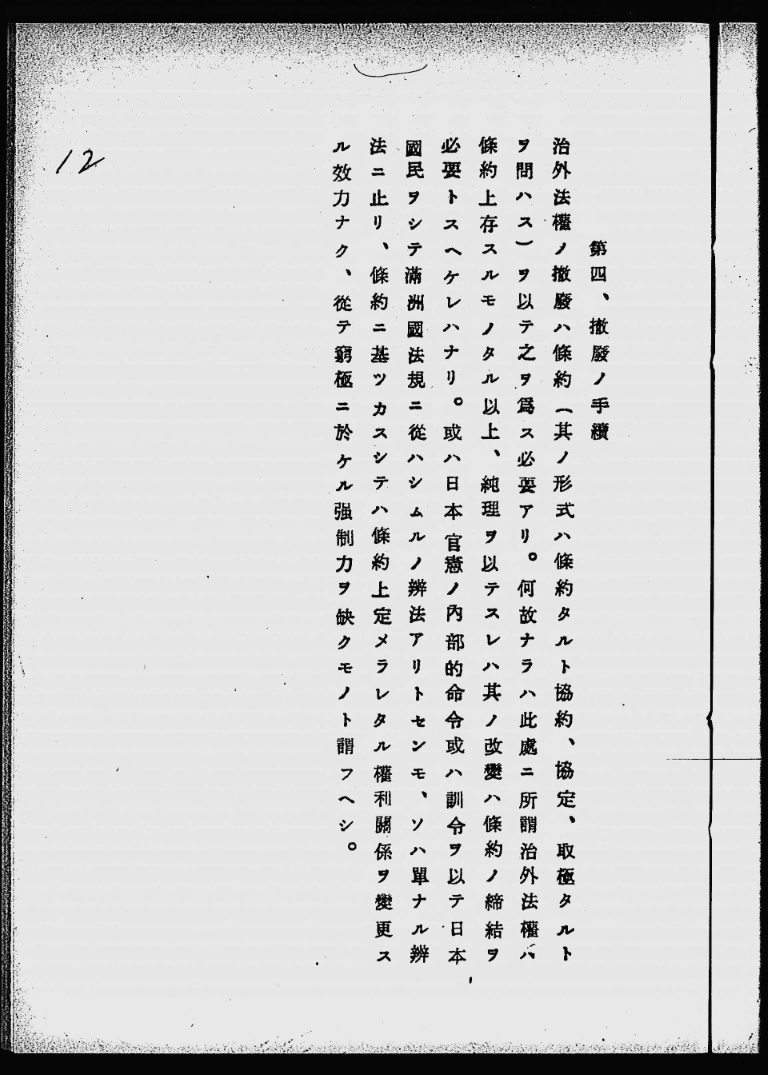 第四、撤廢ノ手續
治外法權ノ撤廢ハ條約（其ノ形式ハ條約タルト協約、協定、取極タルト
ヲ問ハス）ヲ以テ之ヲ爲ス必要アリ。何故ナラハ此處ニ所謂治外法權ハ
條約上存スルモノタル以上、純理ヲ以テスレハ其ノ改變ハ條約ノ締結ヲ
必要トスヘケレハナリ。或ハ日本官憲ノ內部的命令或ハ訓令ヲ以テ日本
國民ヲシテ滿洲國法規ニ從ハシムルノ辨法アリトセンモ、ソハ單ナル辨
法ニ止リ、條約ニ基ツカスシテハ條約上定メラレタル權利關係ヲ變更ス
ル效力ナク、從テ窮極ニ於ケル强制力ヲ缺クモノト謂フヘシ。
12